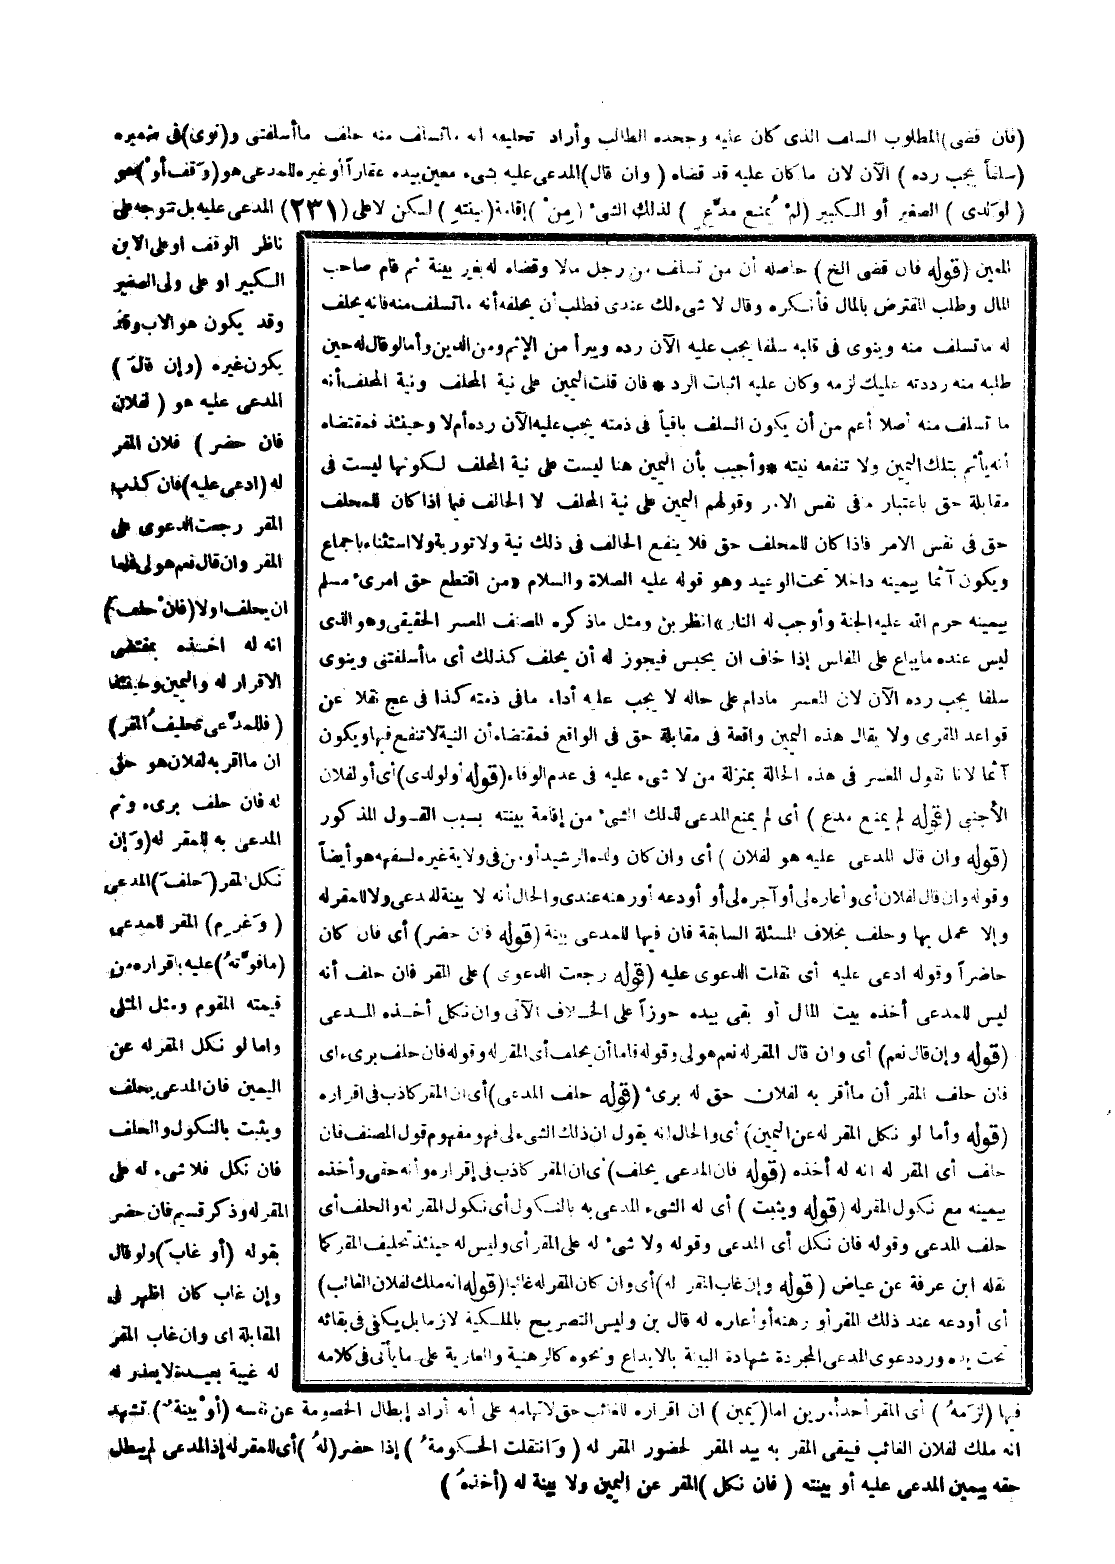 (فان قضى) المطلوب السلف الذى كان عليه وجحده الطالب وأراد تحليفه انه ما تسلف منه حلف ما أسلفتنى و(نوى) فى ضميره
(سلفاً يجب رده) الآن لان ما كان عليه قد قضاه (وان قال) المدعى عليه شىء معين بيده عقاراً أو غيره للمدعى هو (وَقف أوْ) هو
(لوَلدى) الصغير أو الكبير (لمْ يُمنع مدَّعٍ) لذلك الشىء (منْ) إقامة (بينتهِ) لكن لا على (٢٣١) المدعى عليه بل تتوجه على
ناظر الوقف او على الابن
الكبير او على ولى الصغير
وقد يكون هو الاب وقد
يكون غيره (وإن قالَ)
المدعى عليه هو (لفلان
فان حضر) فلان المقر
له (ادعى عليه) فان كذب
المقر رجعت الدعوى على
المقر وان قال نعم هو لى فاما
ان يحلف اولا (فانْ حلف)
انه له اخذه بمقتضى
الاقرار له واليمين وحينئذ
(فللمدَّعى تحليفُ المقر)
ان ما اقر به لفلان هو حق
له فان حلف برىء وتم
المدعى به للمقر له (وَإن
نكل المقر (حلفَ) المدعى
(وَغرم) المقر للمدعى
(ما فوَّتهُ) عليه باقراره من
قيمته المقوم ومثل المثلى
واما لو نكل المقر له عن
اليمين فان المدعى يحلف
ويثبت بالنكول والحلف
فان نكل فلا شىء له على
المقر له وذكر قسيم فان حضر
بقوله (أو غابَ) ولو قال
وإن غاب كان اظهر فى
المقابلة اى وان غاب المقر
له غيبة بعيدة لا يعذر له
المعين (قوله فان قضى الخ) حاصله أن من تسلف من رجل مالا وقضاه له بغير بينة ثم قام صاحب
المال وطلب المقترض بالمال فأنكره وقال لا شىء لك عندى فطلب أن يحلفه أنه ما تسلف منه فانه يحلف
له ما تسلف منه وينوى فى قلبه سلفا يجب عليه الآن رده ويبرأ من الإثم ومن الدين وأما لو قال له حين
طلبه منه رددته عليك لزمه وكان عليه اثبات الرد * فان قلت اليمين على نية المحلف ونية المحلف أنه
ما تسلف منه أصلا أعم من أن يكون السلف باقياً فى ذمته يجب عليه الآن رده أم لا وحينئذ فمقتضاه
أنه يأثم بتلك اليمين ولا تنفعه نيته * وأجيب بأن اليمين هنا ليست على نية المحلف لكونها ليست فى
مقابلة حق باعتبار ما فى نفس الامر وقولهم اليمين على نية المحلف لا الحالف فيما اذا كان للمحلف
حق فى نفس الامر فاذا كان للمحلف حق فلا ينفع الحالف فى ذلك نية ولا تورية ولا استثناء باجماع
ويكون آثما بيمينه داخلا تحت الوعيد وهو قوله عليه الصلاة والسلام «من اقتطع حق امرىء مسلم
بيمينه حرم الله عليه الجنة وأوجب له النار» انظر بن ومثل ما ذكره المصنف المعسر الحقيقى وهو الذى
ليس عنده ما يباع على المفلس إذا خاف ان يحبس فيجوز له أن يحلف كذلك أى ما أسلفتنى وينوى
سلفا يجب رده الآن لان المعسر مادام على حاله لا يجب عليه أداء ما فى ذمته كذا فى عج نقلا عن
قواعد المقرى ولا يقال هذه اليمين واقعة فى مقابلة حق فى الواقع فمقتضاه أن النية لا تنفع فيها ويكون
آثما لانا نقول المعسر فى هذه الحالة بمنزلة من لا شىء عليه فى عدم الوفاء (قوله أو لولدى) أى أو لفلان
الأجنبى (قوله لم يمنع مدع) أى لم يمنع المدعى لذلك الشىء من إقامة بينته بسبب القول المذكور
(قوله وان قال المدعى عليه هو لفلان) أى وان كان ولده الرشيد أو من فى ولاية غيره لسفهه هو أيضاً
وقوله وان قال لفلان أى وأعاره لى أو آجره لى أو أودعه أو رهنه عندى والحال أنه لا بينة للمدعى ولا للمقر له
وإلا عمل بها وحلف بخلاف المسئلة السابقة فان فيها للمدعى بينة (قوله فان حضر) أى فان كان
حاضراً وقوله ادعى عليه أى نقلت الدعوى عليه (قوله رجعت الدعوى) على المقر فان حلف أنه
ليس للمدعى أخذه بيت المال أو بقى بيده حوزاً على الخلاف الآتى وان نكل أخذه المدعى
(قوله وإن قال نعم) أى وان قال المقر له نعم هو لى وقوله فاما أن يحلف أى المقر له وقوله فان حلف برىء اى
فان حلف المقر أن ما أقر به لفلان حق له برىء (قوله حلف المدعى) أى ان المقر كاذب فى اقراره
(قوله وأما لو نكل المقر له عن اليمين) أى والحال انه يقول ان ذلك الشىء لى فهو مفهوم قول المصنف فان
حلف أى المقر له انه له أخذه (قوله فان المدعى يحلف) أى ان المقر كاذب فى إقراره وأنه حقى وأخذه
بيمينه مع نكول المقر له (قوله ويثبت) أى له الشىء المدعى به بالنكول أى نكول المقر له والحلف أى
حلف المدعى وقوله فان نكل أى المدعى وقوله ولا شىء له على المقر أى وليس له حينئذ تحليف المقر كما
نقله ابن عرفة عن عياض (قوله وإن غاب المقر له) أى وان كان المقر له غائبا (قوله انه ملك لفلان الغائب)
أى أودعه عند ذلك المقر أو رهنه أو أعاره له قال بن وليس التصريح بالملكية لازما بل يكفى فى بقائه
تحت يده ورد دعوى المدعى المجردة شهادة البينة بالايداع ونحوه كالرهنية والعارية على ما يأتى فى كلامه
فيها (لزمهُ) أى المقر أحد أمرين اما (يمين) ان اقراره للغائب حق لاتهامه على أنه أراد إبطال الخصومة عن نفسه (أوْ بينةٌ) تشهد
انه ملك لفلان الغائب فيبقى المقر به بيد المقر لحضور المقر له (وَانتقلت الحكومةُ) إذا حضر (لهُ) أى للمقر له إذ المدعى لم يبطل
حقه بيمين المدعى عليه أو بينته (فان نكل) المقر عن اليمين ولا بينة له (أخذهُ)